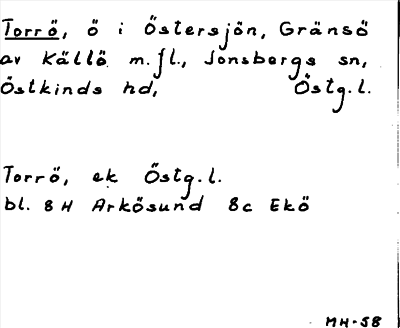 Torrö, ö i Östersjön, Gränsö
av Källö m.fl., Jonsbergs sn,
Östkinds hd, Östg.l.
Torrö, ek Östg.l.
bl. 8H Arkösund 8c Ekö
MH-58